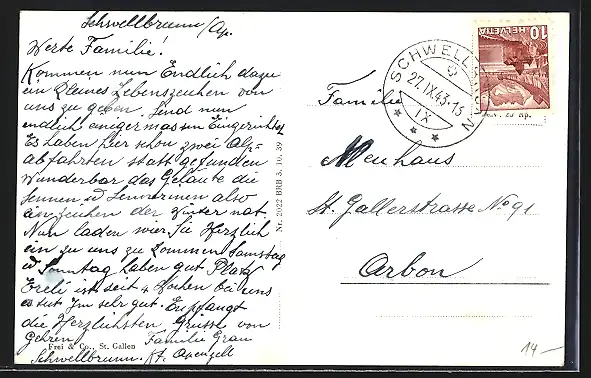 Schwellbrunn/Ap.
Werte Familie!
Kommen nun Endlich dazu
ein Kleines Lebenszeichen von
uns zu geben. Sind nun
endlich einigermassen Eingerichtet
Es haben hier schon zwei Alp-
abfahrten statt gefunden
Wunderbar das Geläute die
Sennen u Sennerinen also
ein zeichen der Winter nat.
Nun laden wir Sie Herzlich
ein zu uns zu Kommen Samstag
u Sonntag haben gut Platz
Ereli ist seit 4 Wochen bei uns
es tut Im sehr gut. Empfangt
die Herzlichsten Grüsse von
Gehren Familie Grau
Schwellbrunn. Kt. Apenzell
Frei & Co., St. Gallen
Nr. 2022 BRB 3. 10. 39
SCHWELLBRUNN
27.IX.43-13
IX
HELVETIA
10
Familie
Neuhaus
St. Gallerstrasse No 91
Arbon
14-